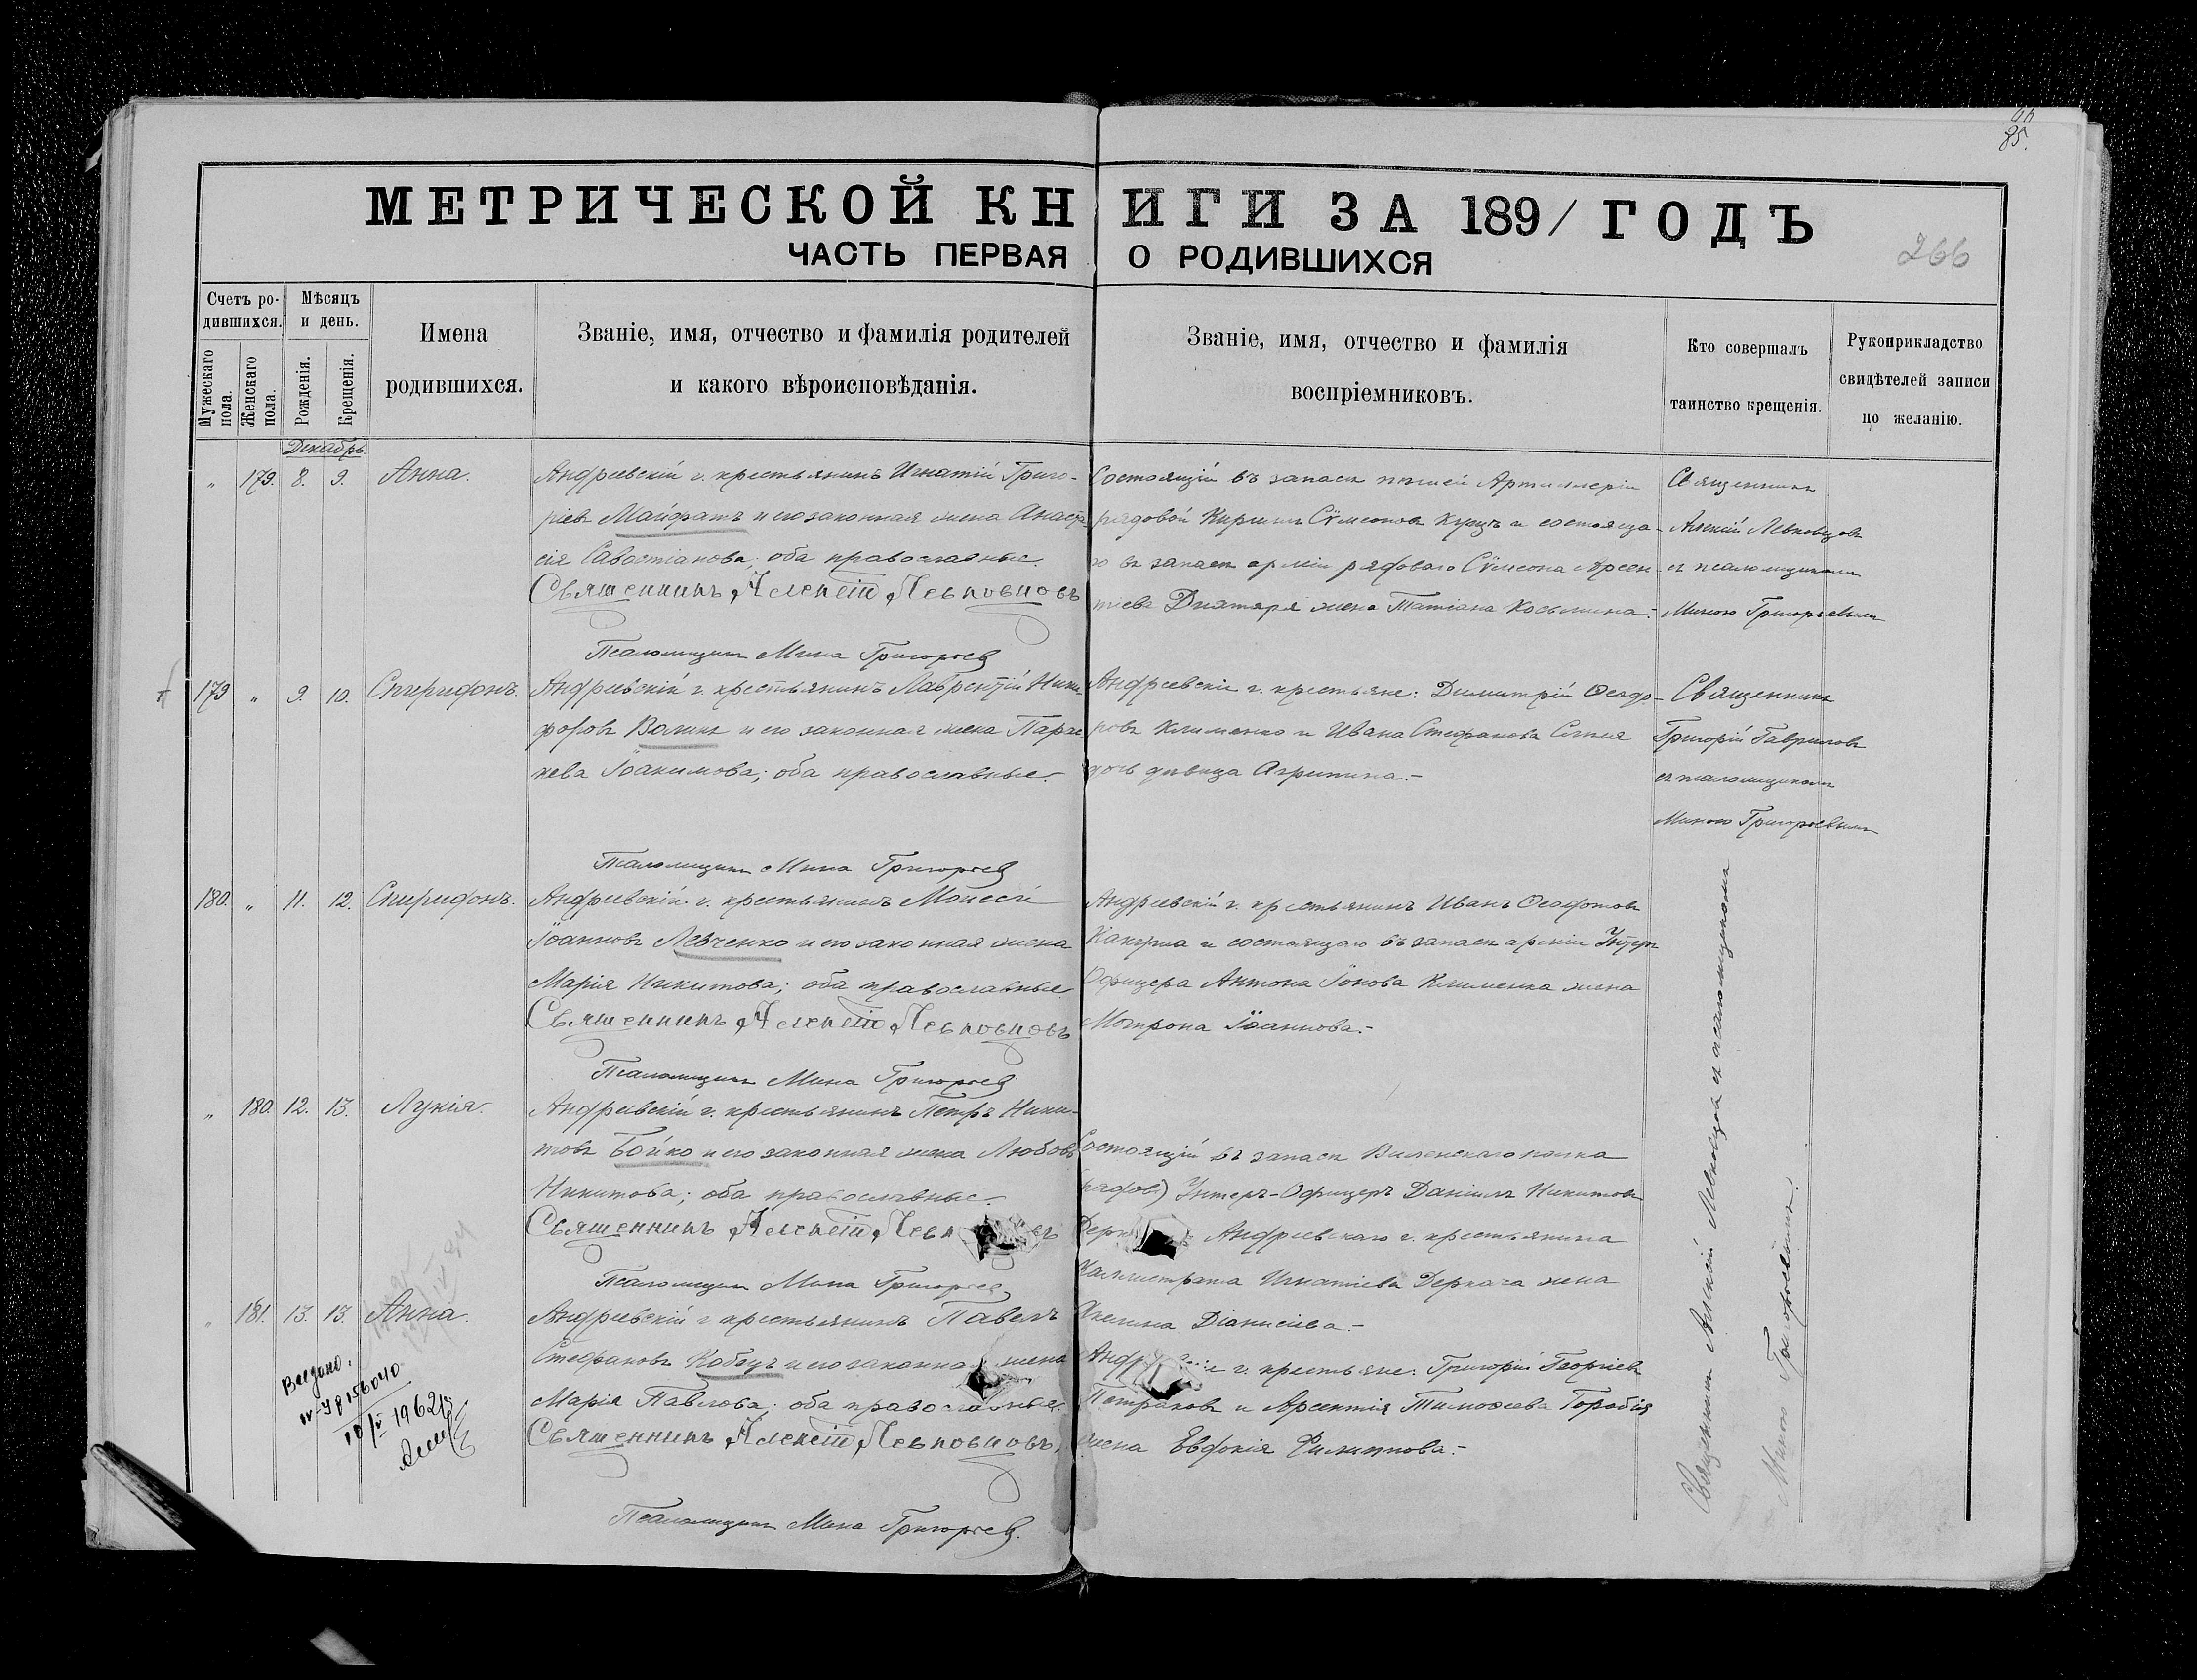 85.
МЕТРИЧЕСКОЙ КНИГИ ЗА 1891 ГОДЪ
ЧАСТЬ ПЕРВАЯ О РОДИВШИХСЯ
266
Счетъ ро-
дившихся.
Мужескаго пола.
Женскаго пола.
Мѣсяцъ
и день.
Рожденія.
Крещенія.
Имена
родившихся.
Званіе, имя, отчество и фамилія родителей
и какого вѣроисповѣданія.
Званіе, имя, отчество и фамилія
воспріемниковъ.
Кто совершалъ
таинство крещенія.
Рукоприкладство
свидѣтелей записи
по желанію.
Декабрь
„ 179. 8. 9. Анна.
Андреевскій г. крестьянинъ Игнатій Григо-
ріевъ Майфатъ и его законная жена Анаста
сія Савостіанова; оба православные.
Священникъ Алексій Левковцовъ
Псаломщикъ Мина Григорьев
Состоящій въ запасѣ пѣшей Артиллеріи
рядовой Кириллъ Сѵмеоновъ Куцъ и состояща-
го въ запасѣ арміи рядоваго Сѵмеона Арсен
тіева Дихтяря жена Татіана Косьмина.-
Священникъ
Алексій Левковцовъ
съ псаломщикомъ
Миною Григорьевымъ
179 „ 9. 10. Спиридонъ.
Андреевскій г. крестьянинъ Лаврентій Ники-
форовъ Воликъ и его законная жена Параске
кева Іоакимова; оба православные.-
Псаломщикъ Мина Григорьев
Андреевскіе г. крестьяне: Димитрій Ѳеодо-
ровъ Клименко и Ивана Стефанова
дочь дѣвица Агрипина.-
Священникъ
Григорій Гавриловъ
съ псаломщикомъ
Миною Григорьевымъ
180. „ 11. 12. Спиридонъ.
Андреевскій г. крестьянинъ Моисей
Іоанновъ Левченко и его законная жена
Марія Никитова; оба православные
Священникъ Алексій Левковцовъ
Псаломщикъ Мина Григорьев
Андреевскій г. крестьянинъ Иванъ Ѳеодотовъ
и состоящаго въ запасѣ арміи Унтеръ
Офицера Антона Іонова Клименка жена
Мотрона Іоаннова.-
„ 180. 12. 13. Лукія.
Андреевскій г. крестьянинъ Петръ Ники-
товъ Бойко и его законная жена Любовь
Никитова; оба православные.-
Священникъ Алексій
Псаломщикъ Мина Григорьев
Состоящій въ запасѣ Виленскаго полка
Унтеръ-Офицеръ Даніилъ Никитовъ
Андреевскаго г. крестьянина
Каллистрата Игнатіева Деркача жена
Акилина Діанисіева.-
„ 181. 13. 13. Анна.
Андреевскій г. крестьянинъ Павелъ
Стефановъ Кобецъ и его законная жена
Марія Павлова; оба православные.
Священникъ Алексій Левковцовъ
Псаломщикъ Мина Григорьев.
г. крестьяне: Григорій Георгіевъ
Петраковъ и Арсентія Тимоѳеева Горобія
жена Евдокія Филиппова.-
Священникъ Алексій Левковцовъ съ псаломщикомъ
Миною Григорьевымъ.
Выдано.
IV-УР 156040
10/IV 1962 г.